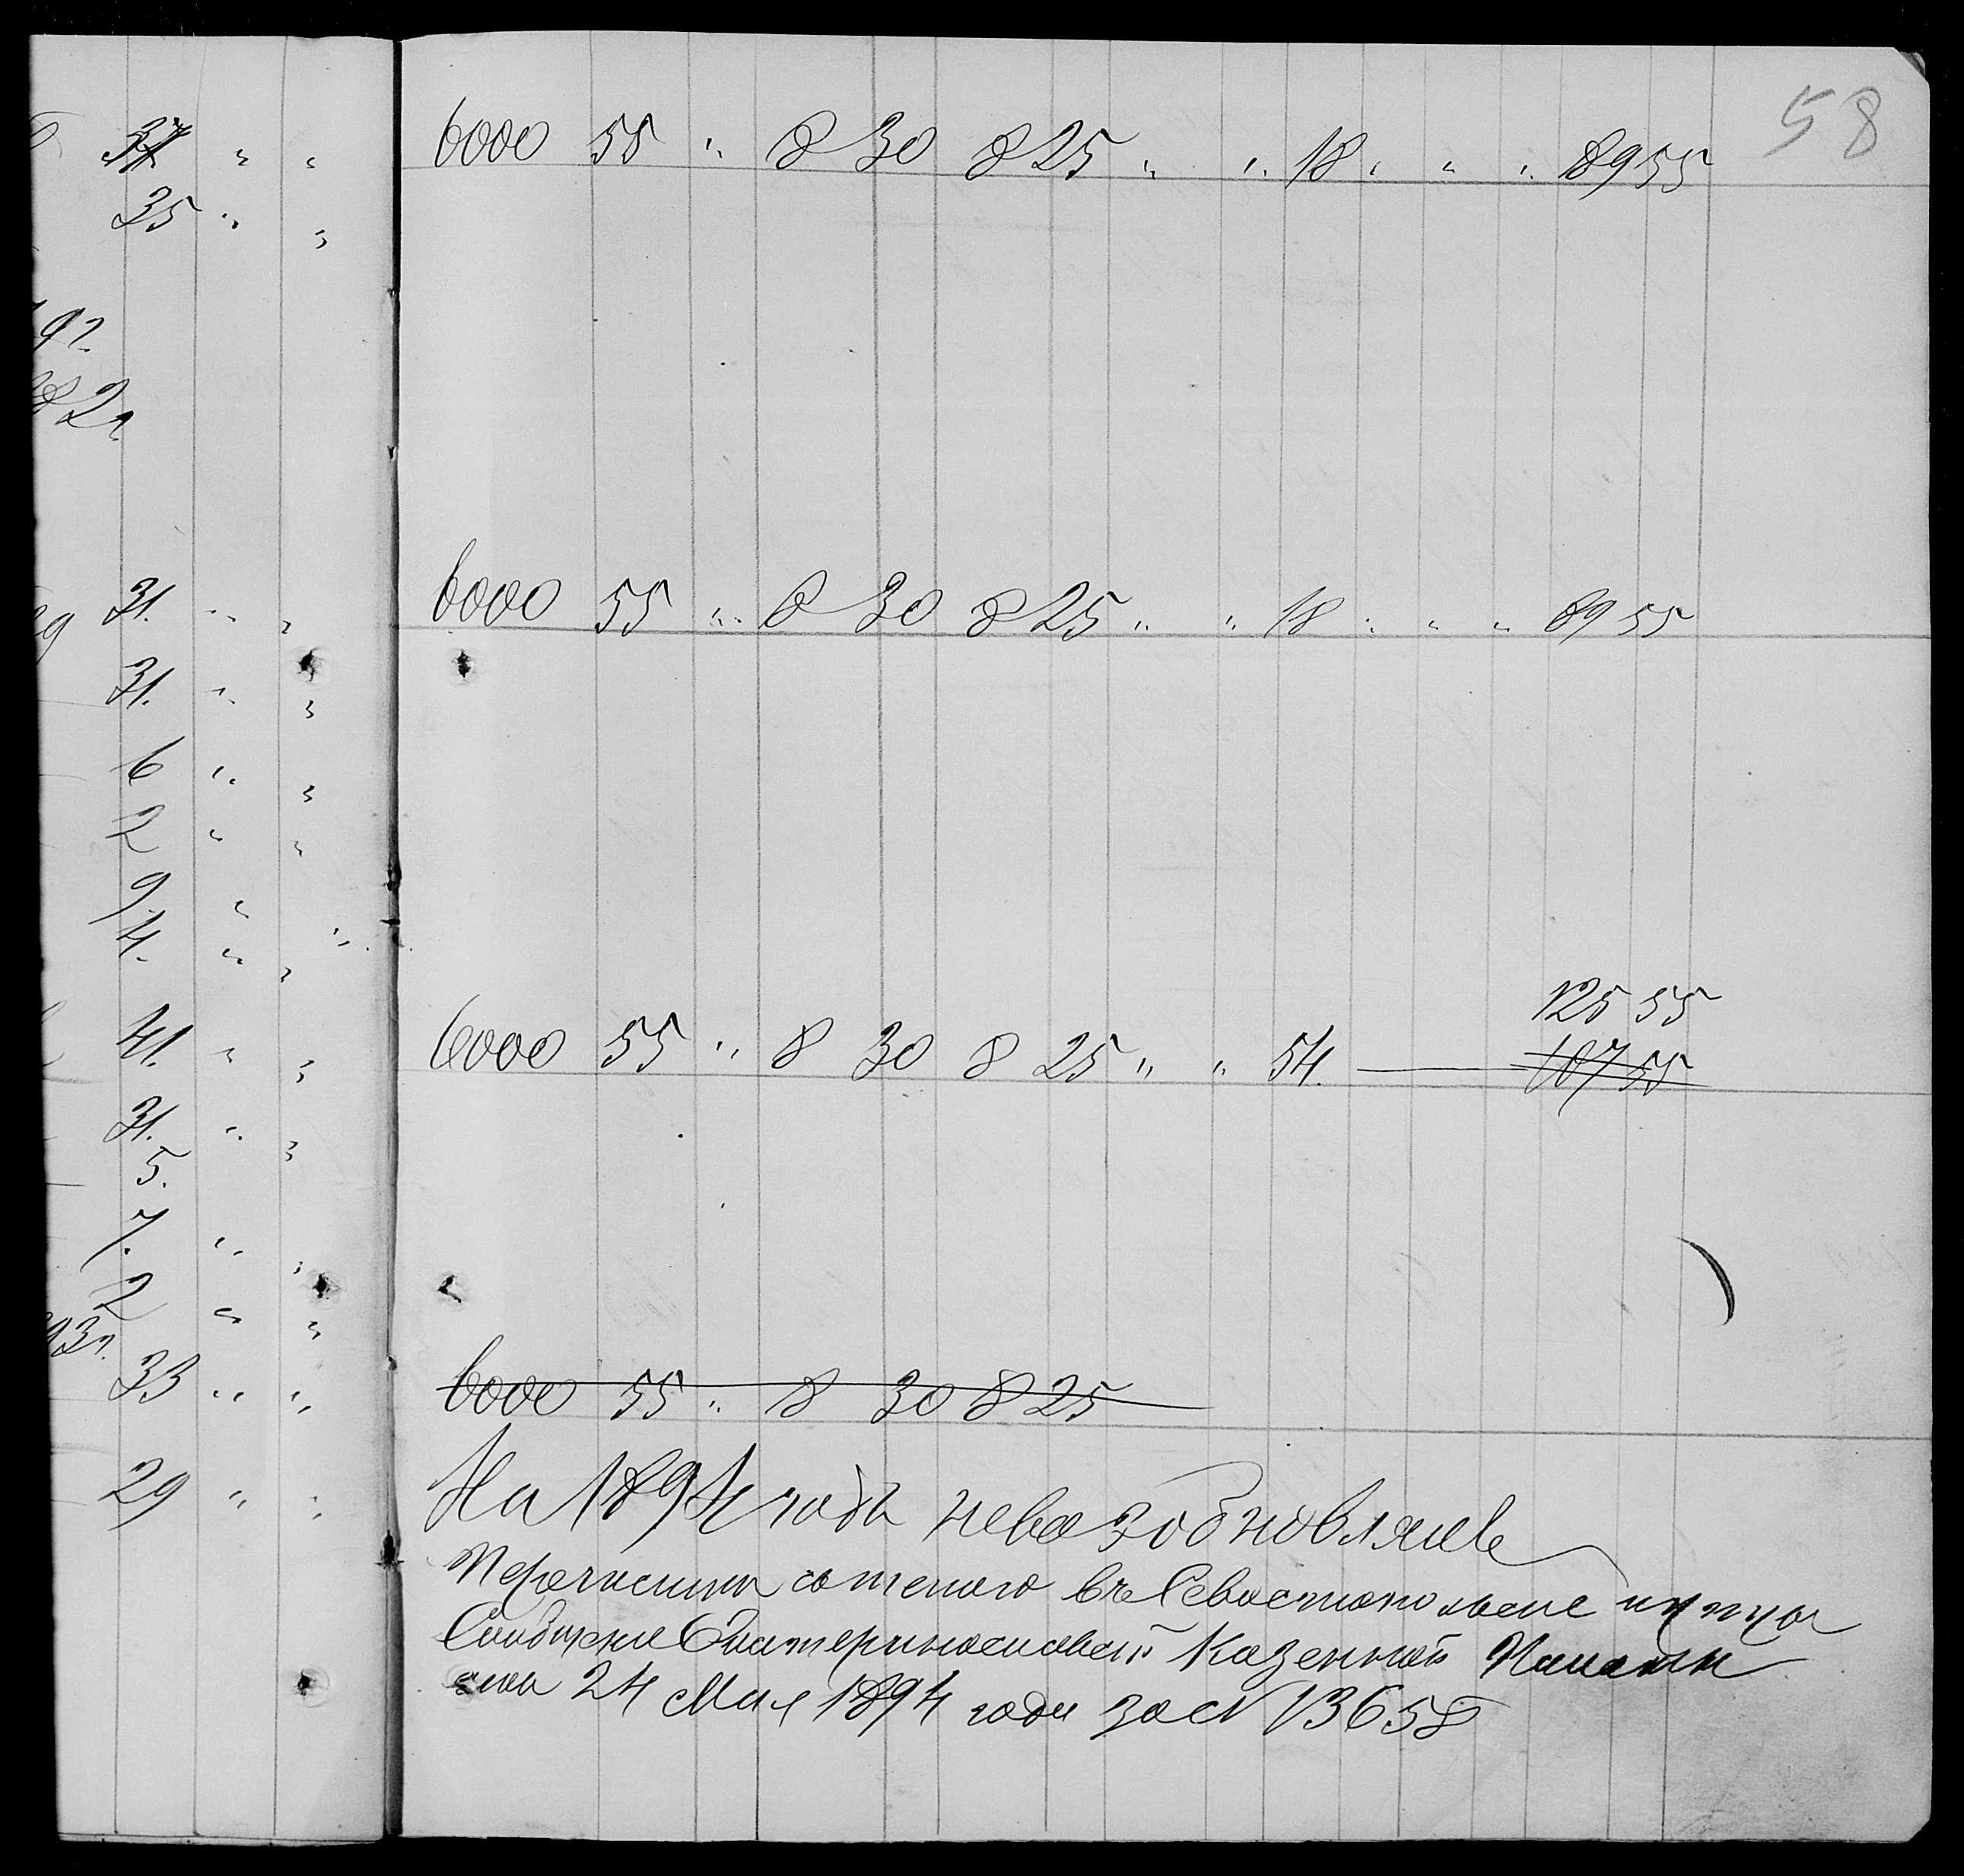 58
37 " "
35 " "
31. " "
31. " "
6 " "
2 " "
9 " "
4. " "
41. " "
31. " "
5.
7. " "
2 " "
33 " "
29 " "
6000 55 " 8 30 8 25 " " 18 " " " 89 55
6000 55 " 8 30 8 25 " " 18 " " " 89 55
125 55
6000 55 " 8 30 8 25 " " 54. — 107 55
6000 55 " 8 30 8 25
На 1894 годъ невозобновляле
Перечислен въ Севастопольские купцы
Екатеринославской Казенной Палаты
24 Мая 1894 года за № 13658